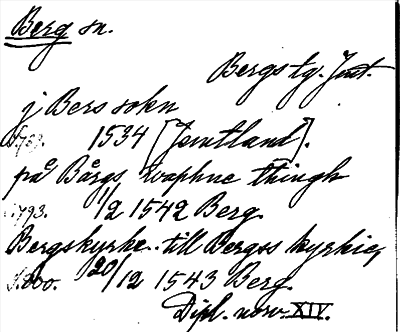 Berg sn.
Bergs tg. Jmt.
j Bers sokn
1534 [Jemtland].
på Bårgs soxphne thingh
s. 793. 1/2 1542 Berg.
Bergskyrke. till Bergss kyrkie,
s. 800. 20/12 1543 Berg.
Dipl. norv. XIV.